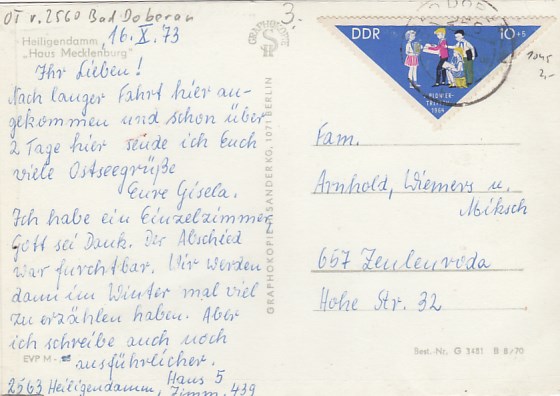 OT v. 2560 Bad Doberan
3.-
Heiligendamm,
„Haus Mecklenburg"
16. X. 73
Ihr Lieben!
Nach langer Fahrt hier an-
gekommen und schon über
2 Tage hier sende ich Euch
viele Ostseegrüße
Eure Gisela.
Ich habe ein Einzelzimmer
Gott sei Dank. Der Abschied
war furchtbar. Wir werden
dann im Winter mal viel
zu erzählen haben. Aber
ich schreibe auch noch
ausführlicher.
EVP M -
2563 Heiligendamm, Haus 5
Zimm. 439
GRAPHOKOPIE
GRAPHOKOPIE H. SANDER KG, 1071 BERLIN
DDR
10+5
PIONIER-
TREFFEN
1964
1045
2,-
Fam.
Arnhold, Wiemers u.
Miksch
657 Zeulenroda
Hohe Str. 32
Best.-Nr. G 3481 B 8/70